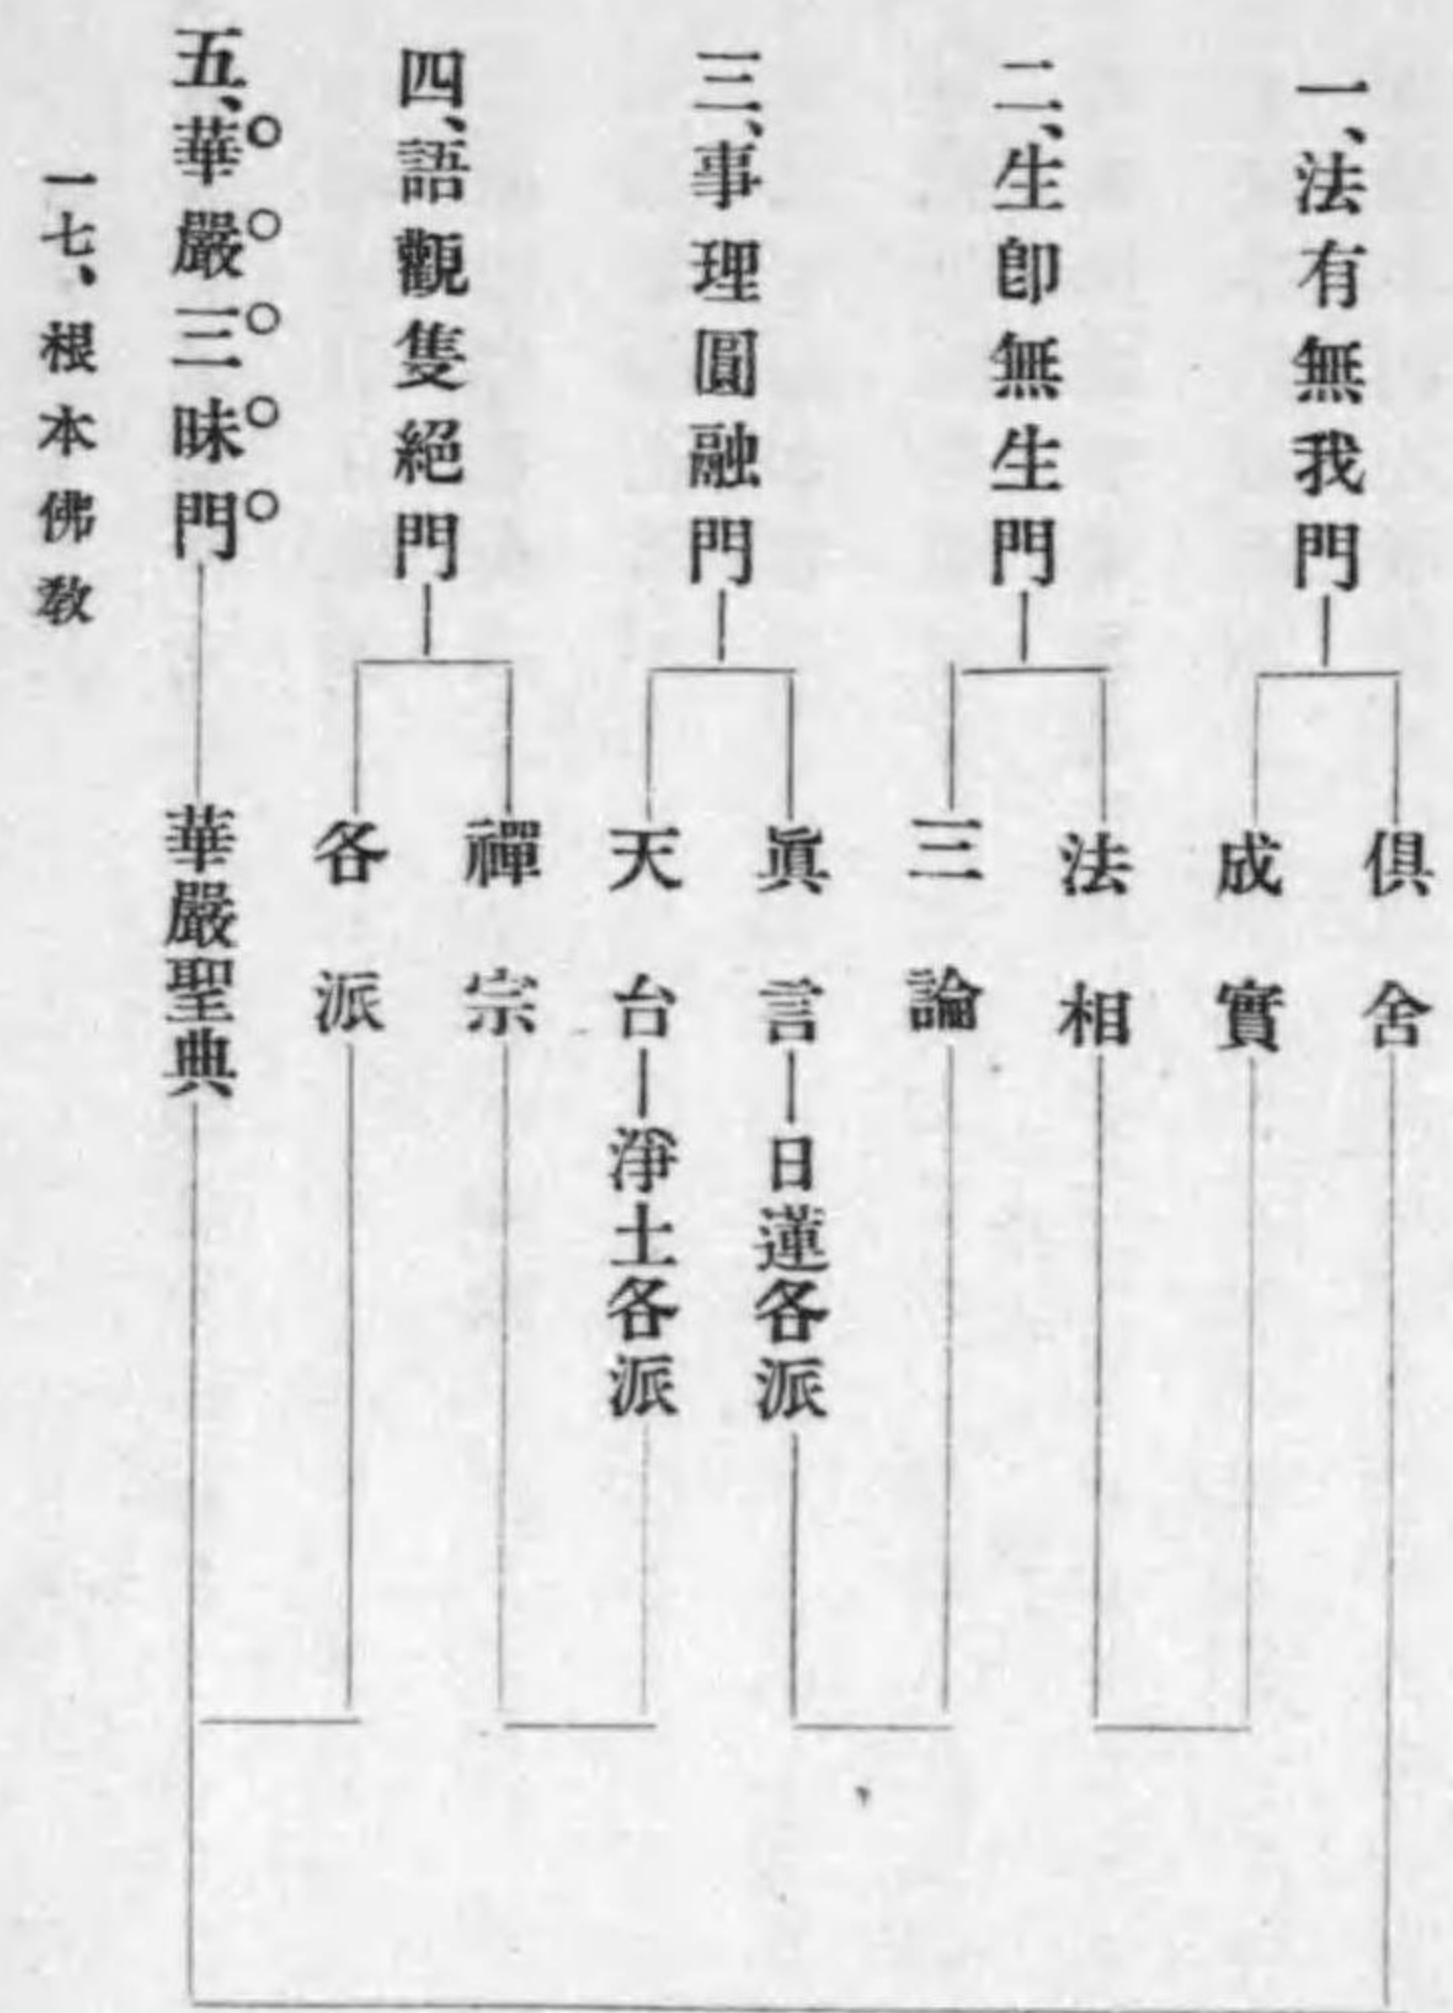 一、法有無我門
俱舍
成實
二、生卽無生門
法相
三論
三、事理圓融門
眞言—日蓮各派
天台—淨土各派
四、語觀隻絕門
禪宗
各派
五、華嚴三昧門
華嚴聖典
一七、根本佛敎